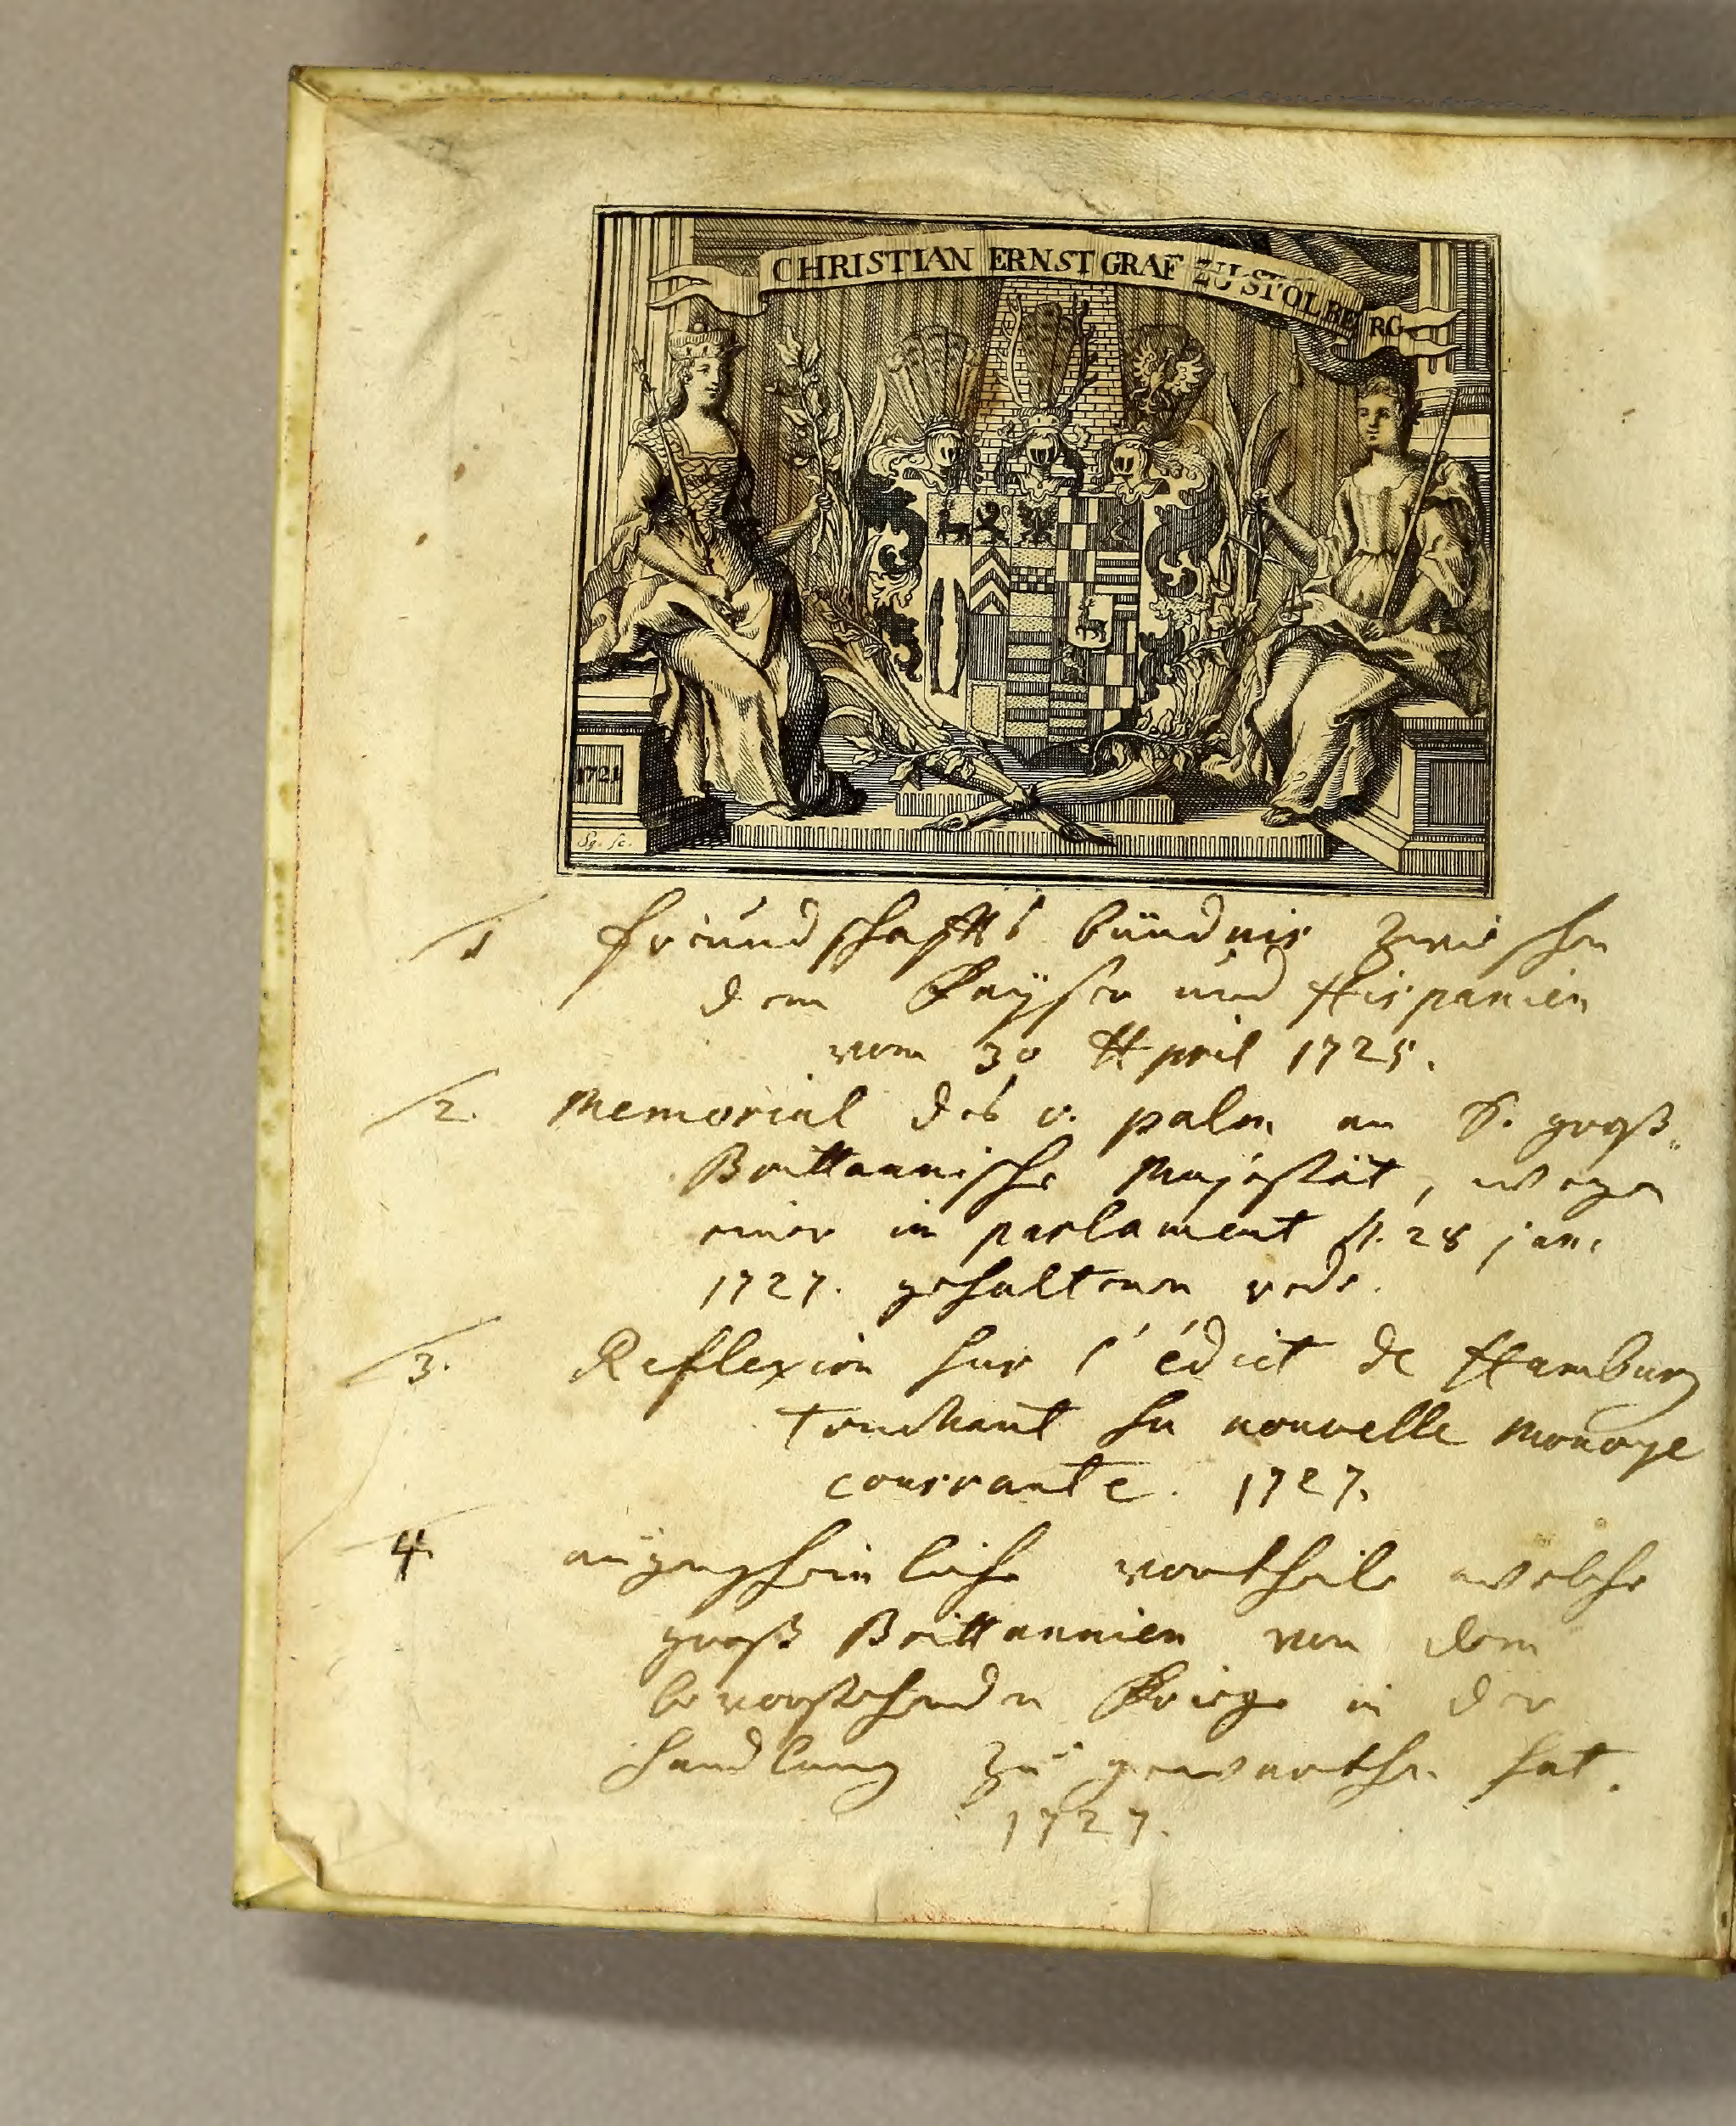 CHRISTIAN ERNST GRAF ZU STOLBERG
1721
Sg. sc.
1 freundschaffts bündnis zwischen
dem Kayser und Hispanien
vom 30 April 1725.
2. Memorial des v. palm an S. groß
Brittannische Majestät, wegen
einer in parlament d. 28 jan.
1727. gehaltenen rede.
3. Reflexion sur l'édict de Hamburg
touchant sa nouvelle monoye
courrante. 1727.
4. augenscheinliche vortheile welche
groß Brittannien von dem
bevorstehenden Kriege in der
handlung zu gewarthen hat.
1727.